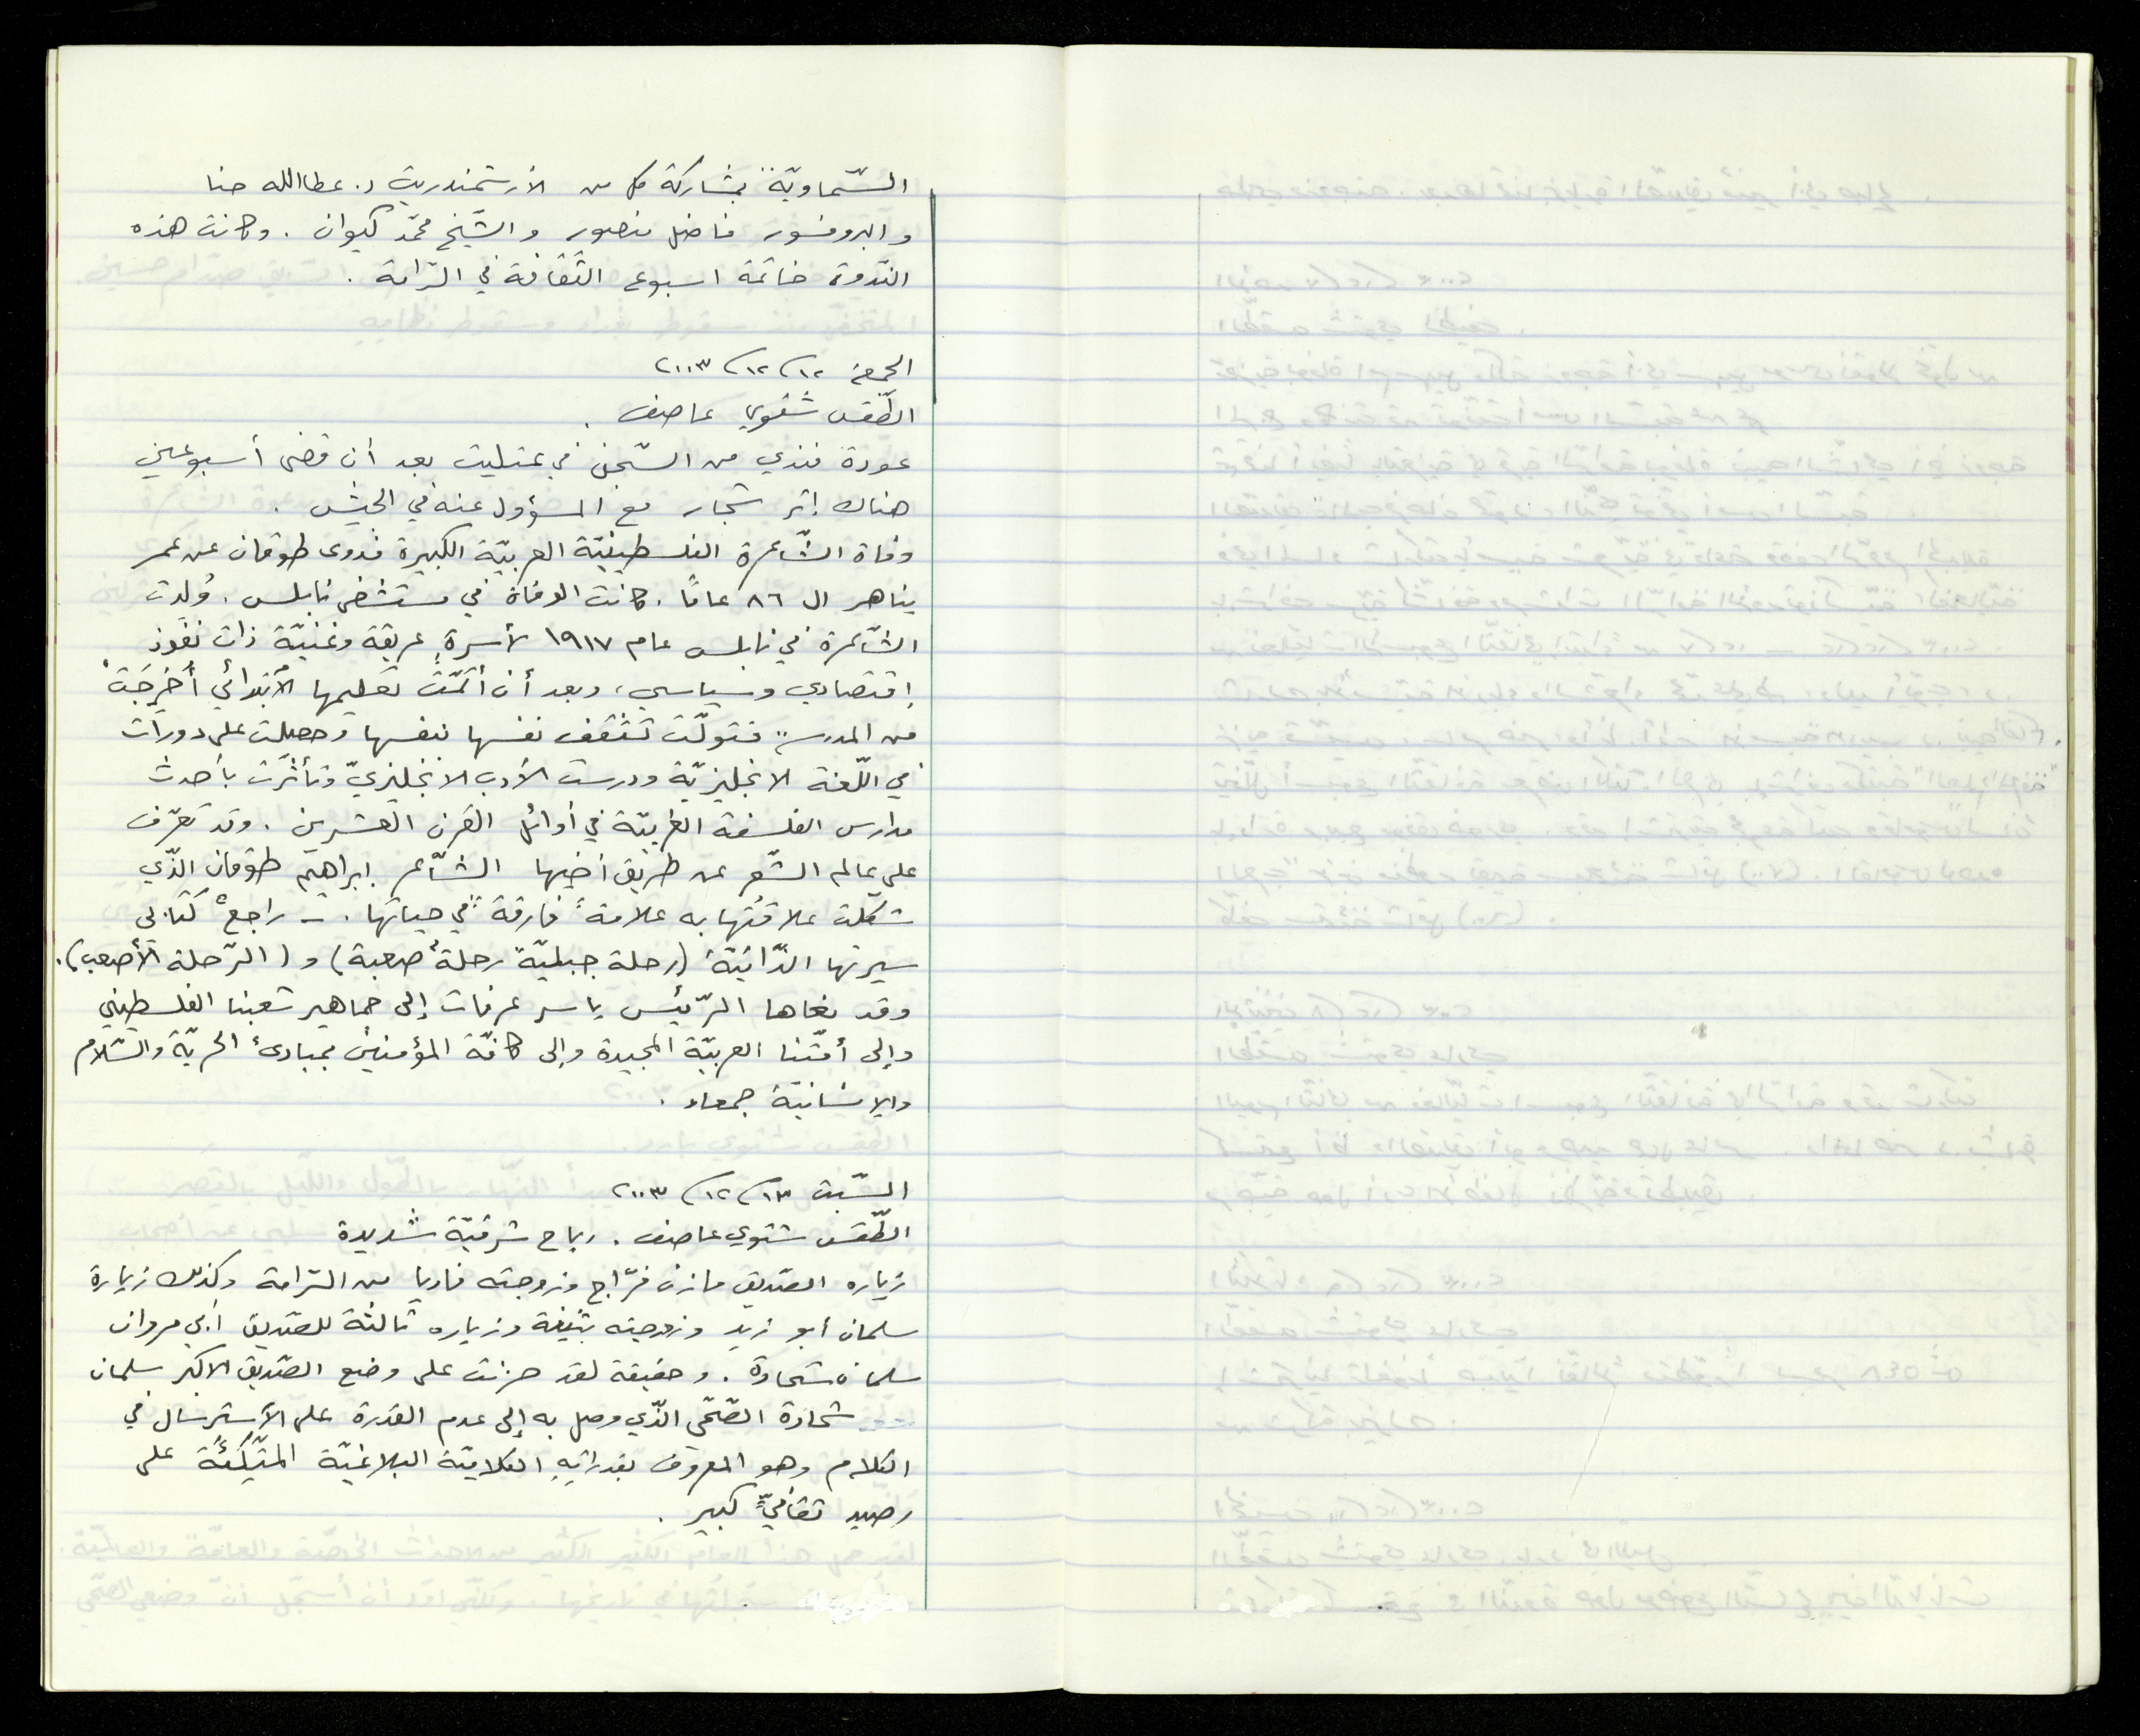 السّماويّة" بمشاركة كل من الأرشمندريت د. عطاالله حنا
والبروفسور فاضل منصور والشّيخ محمّد كيوان. وكانت هذه
النّدوة خاتمة اسبوع الثّقافة في الرّامة.
الجمعة ١٢/١٢/٢٠٠٣
الطّقس شتوي عاصف.
عودة فندي من السّجن في عتليت بعد أن قضى أسبوعين
هناك إثر شجار مع المسؤول عنه في الجيش.
وفاة الشّاعرة الفلسطينيّة العربيّة الكبيرة فدوى طوقان عن عمر
يناهز ال ٨٦ عامًا. كانت الوفاة في مستشفى نابلس. وُلدت
الشّاعرة في نابلس عام ١٩١٧ لأسرةٍ عريقة وغنيّة ذات نفوذ
إقتصادي وسياسي، وبعد أن أتمّت تعليمها الأبتدائي أُخرِجَتْ
من المدرسة فتولّت تثقف نفسها بنفسها وحصلت على دورات
في اللّغة الانجليزيّة ودرست الأدب الانجليزيّ وتأثرت بأحدث
مدارس الفلسفة الغربيّة في أوائل القرن العشرين. وقد تعرّف
على عالم الشّعر عن طريق أخيها الشّاعر ابراهيم طوقان الذّي
شكّلت علاقتُها به علامةً فارقةً في حياتها. - راجعْ كتابي
سيرتها الذّاتيّة (رحلة جبليّة رحلةٌ صعبة) و (الرّحلة الأصعب).
وقد نعاها الرّئيس ياسر عرفات إلى جماهير شعبنا الفلسطيني
وإلى أمّتنا العربيّة المجيدة وإلى كافّة المؤمنين بمبادئ الحريّة والسّلام
والإنسانيّة جمعاء.
السّبت ١٣/١٢/٢٠٠٣
الطّقس شتوي عاصف. رياح شرقيّة شديدة
زياره الصّديق مازن فرّاج وزوجته ناديا من الرّامة وكذلك زيارة
سلمان أبو زيد وزوجته بثينة وزياره ثالثة للصّديق أبي مروان
سلمان شحادة. وحقيقة لقد حزنت على وضع الصّديق الاكبر سلمان
شحادة الصّحّي الذّي وصل به إلى عدم القدرة على الأسترسال في
الكلام وهو المعروف بقدراتِهِ الكلاميّة البلاغيّة المتّكئَة على
رصيد ثقافيٍّ كبير.